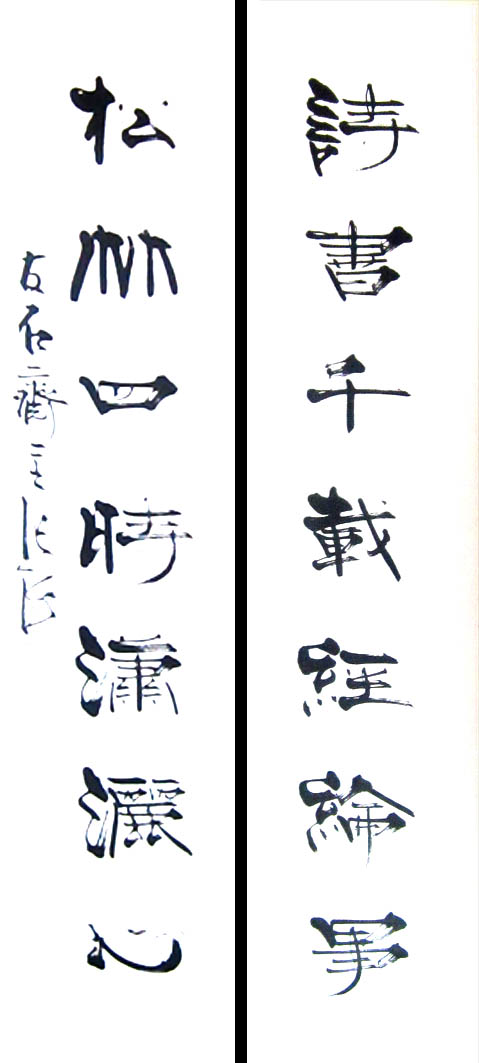 詩書千載經綸事
松竹四時瀟灑心
古石齋主